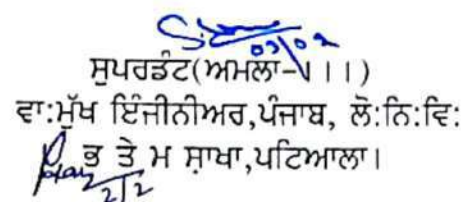 02/02
ਸੁਪਰਡੰਟ(ਅਮਲਾ-V।।)
ਵਾ:ਮੁੱਖ ਇੰਜੀਨੀਅਰ,ਪੰਜਾਬ, ਲੋ:ਨਿ:ਵਿ:
ਭ ਤੇ ਮ ਸ਼ਾਖਾ,ਪਟਿਆਲਾ।
2/2